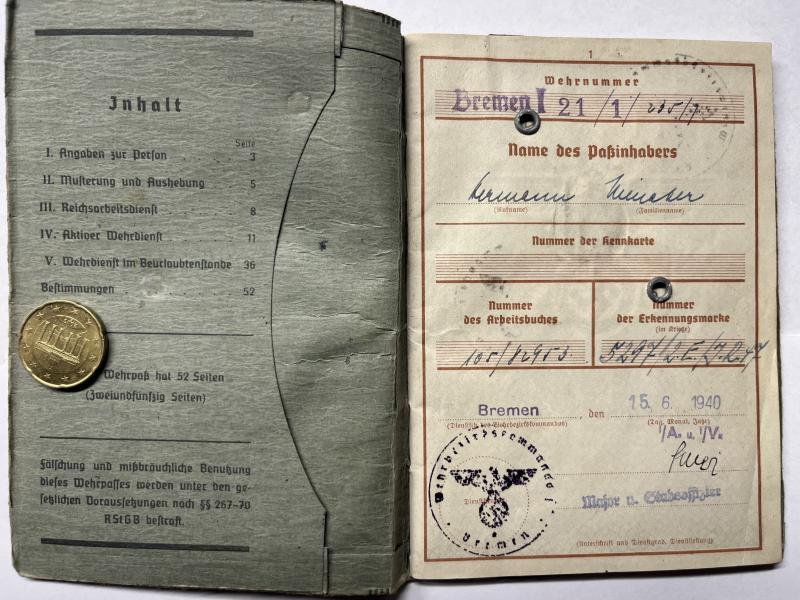 Inhalt
Seite
I. Angaben zur Person . . . 3
II. Musterung und Aushebung . 5
III. Reichsarbeitsdienst . . . 8
IV. Aktiver Wehrdienst . . . 11
V. Wehrdienst im Beurlaubtenstande 36
Bestimmungen . . . . 52
Wehrpaß hat 52 Seiten
(Zweiundfünfzig Seiten)
Fälschung und mißbräuchliche Benutzung
dieses Wehrpasses werden unter den ge-
setzlichen Voraussetzungen nach §§ 267–70
RStGB bestraft.
1
Wehrnummer
Bremen I 21 / 1 /
Name des Paßinhabers
Hermann
(Rufname) (Familienname)
Nummer der Kennkarte
Nummer
des Arbeitsbuches
Nummer
der Erkennungsmarke
(im Kriege)
105/82953
Bremen, den 15. 6. 1940
(Dienstsitz des Wehrbezirkskommandos) (Tag, Monat, Jahr)
I/A. u. I/V.
Wehrbezirkskommando I
Bremen
Major u. Stabsoffizier
(Unterschrift und Dienstgrad, Dienststellung)